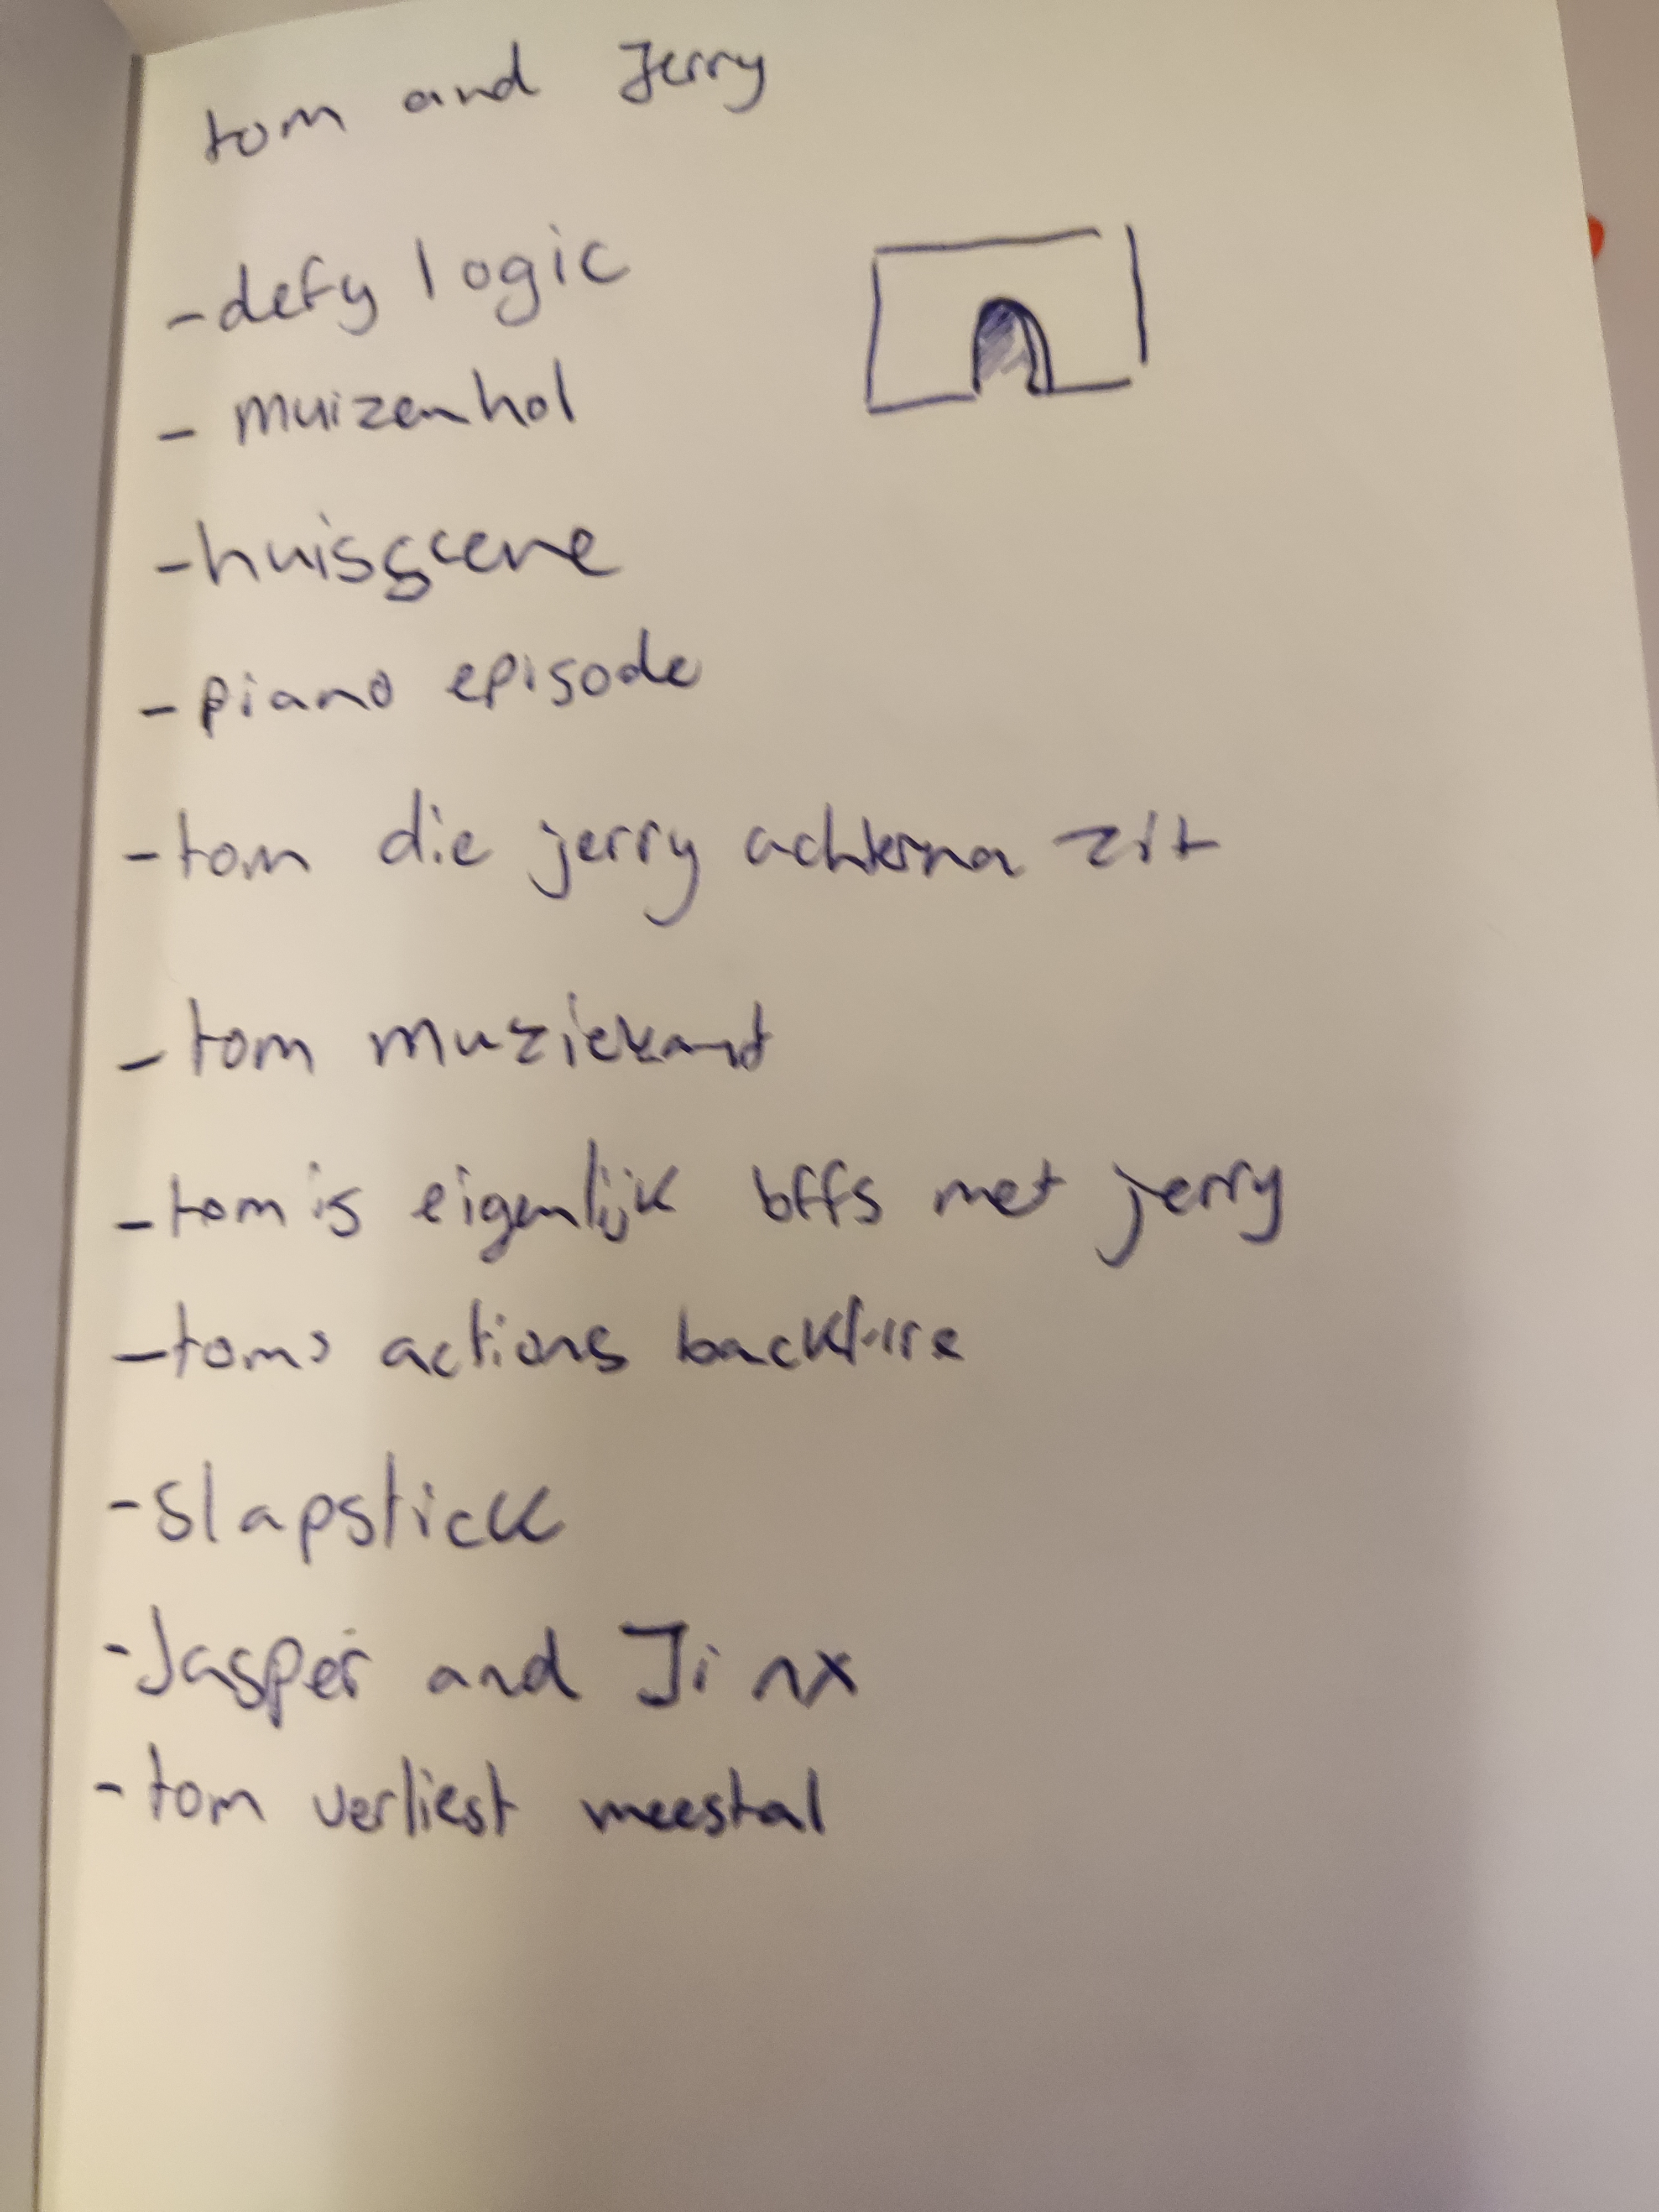 tom and Jerry
- defy logic
- muizenhol
- huisscene
- piano episode
- tom die jerry achterna zit
- tom muziekant
- tom is eigenlijk bffs met jerry
- toms actions backfire
- slapstick
- Jasper and Jinx
- tom verliest meestal